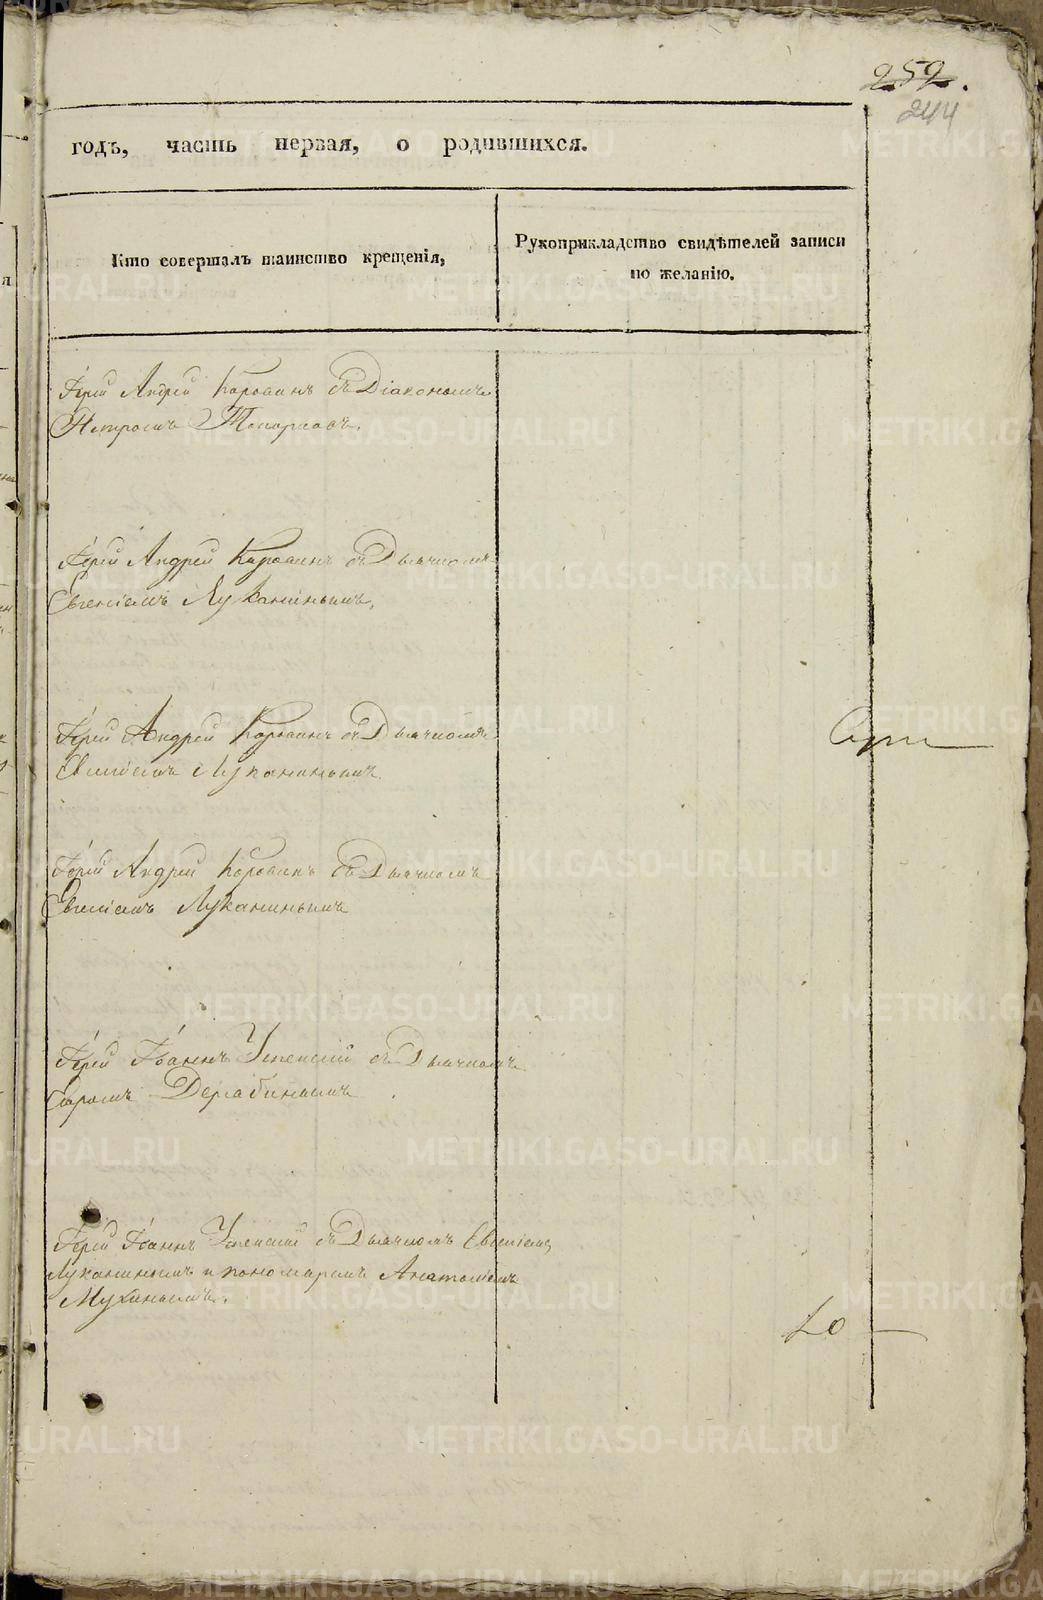 252.
244
годъ, часть первая, о родившихся.
Кто совершалъ таинство крещенія,
Рукоприкладство свидѣтелей записи
по желанію.
Іерей Андрей Коровинъ съ Діакономъ
Петромъ
Іерей Андрей Коровинъ съ Дьячкомъ
Евгеніемъ Луканинымъ,
Іерей Андрей Коровинъ съ Дьячкомъ
Евгеніемъ Луканинымъ
Іерей Андрей Коровинъ съ Дьячкомъ
Евгеніемъ Луканинымъ
Іерей Іоаннъ Успенскій съ Дьячкомъ
Дерябинымъ
Іерей Іоаннъ Успенскій съ Дьячкомъ Евгеніемъ
Луканинымъ и пономаремъ Анатоліемъ
Мухинымъ.
METRIKI.GASO-URAL.RU